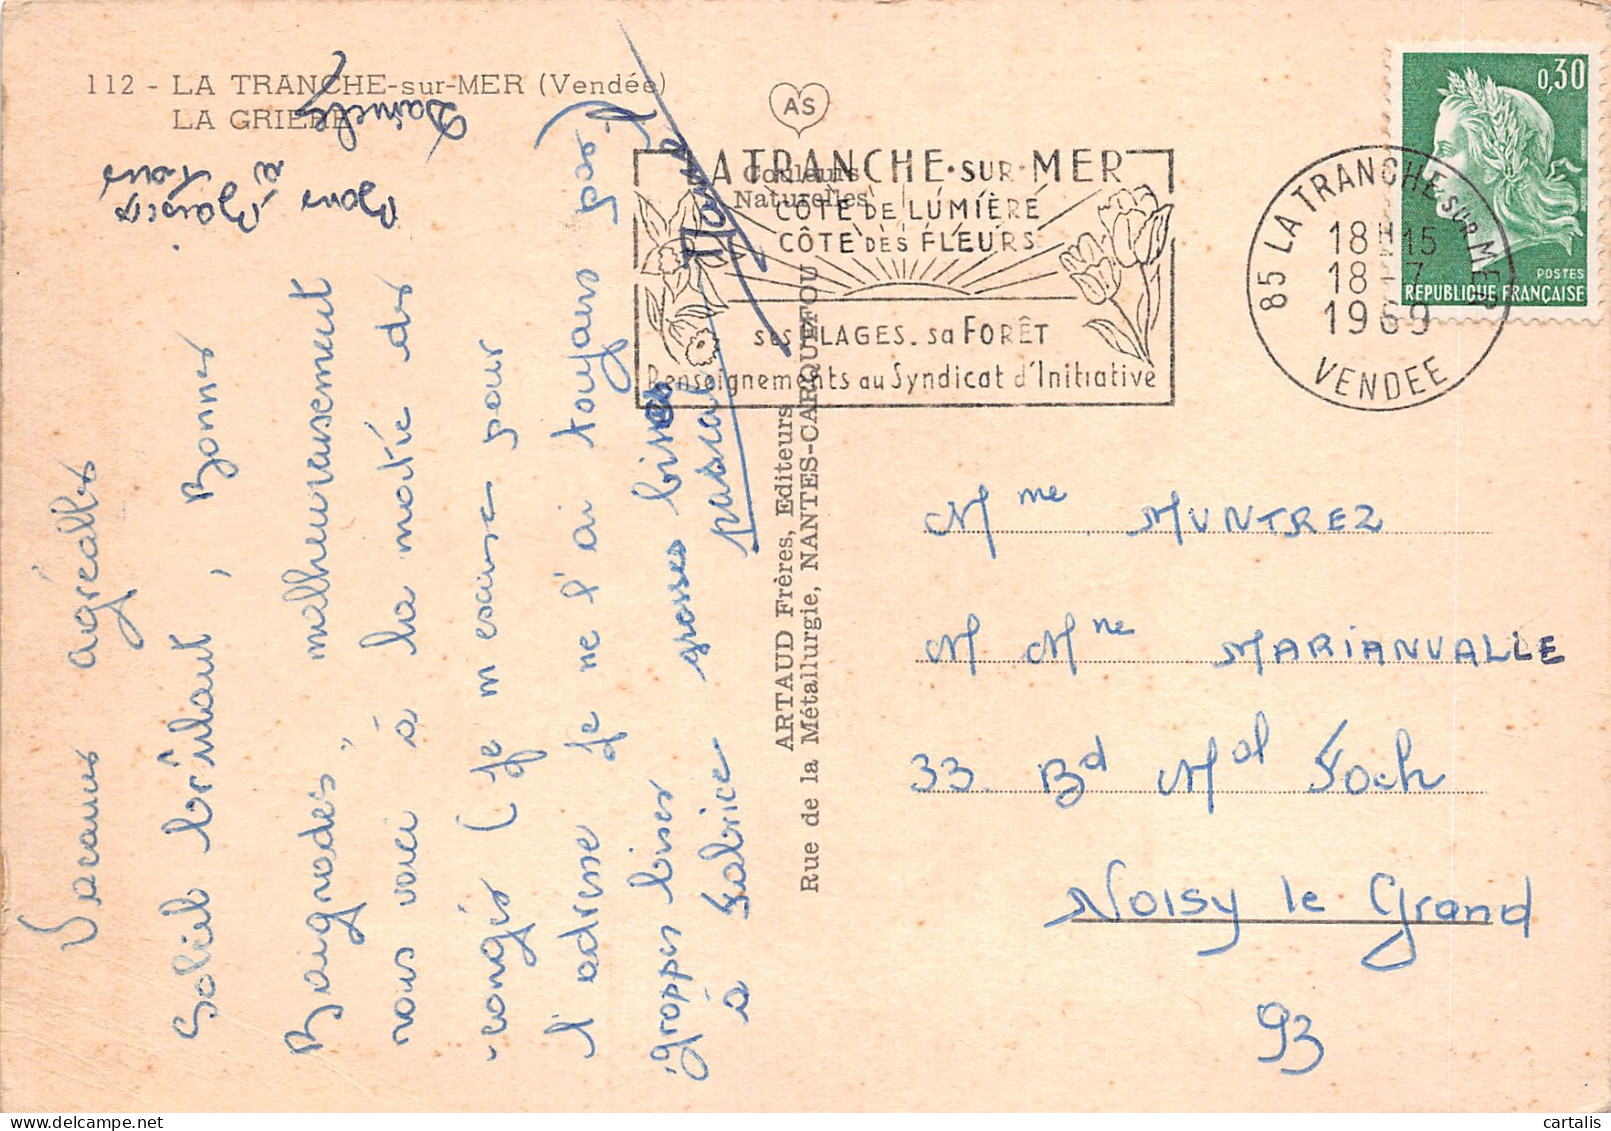 112 - LA TRANCHE-sur-MER (Vendée)
LA GRIERE
AS
Couleurs
Naturelles
ARTAUD Frères, Editeurs
Rue de la Métallurgie, NANTES-CARQUEFOU
LA TRANCHE·SUR·MER
CÔTE DE LUMIÈRE
CÔTE DES FLEURS
SES PLAGES. sa FORÊT
Renseignements au Syndicat d'Initiative
85 LA TRANCHE SUR MER
18H15
18-7
1969
VENDEE
0,30
POSTES
REPUBLIQUE FRANÇAISE
Vacances agréables
Soleil brillant, Bonnes
Baignades, malheureusement
nous voici à la moitié des
congés (je m'excuse pour
l'adresse je ne l'ai toujours pas)
grosses bises
à Fabrice
grosses bises
pascal
Bons Baisers
à tous
Mme MUNTREZ
M Mme MARIANVALLE
33 Bd Mal Foch
NOISY le Grand
93
cartalis